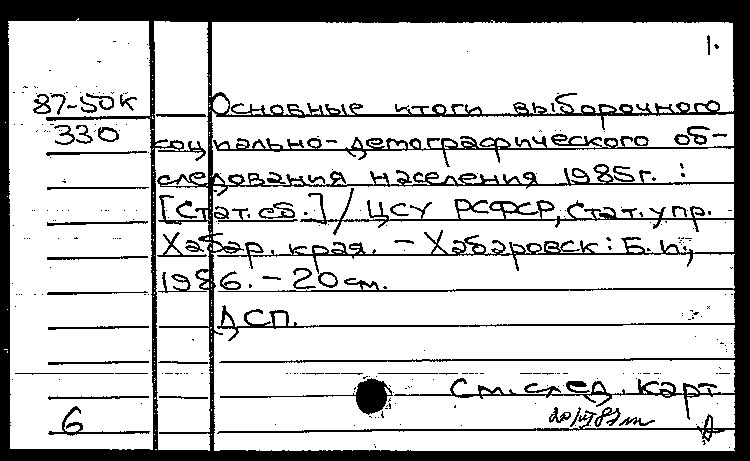 1.
87-50К
330
Основные итоги выборочного
социально-демографического об-
следования населения 1985г. :
[Стат.сб.] / ЦСУ РСФСР, Стат. упр.
Хабар. края. – Хабаровск : Б.и.,
1986. – 20 см.
ДСП.
См. след. карт.
6